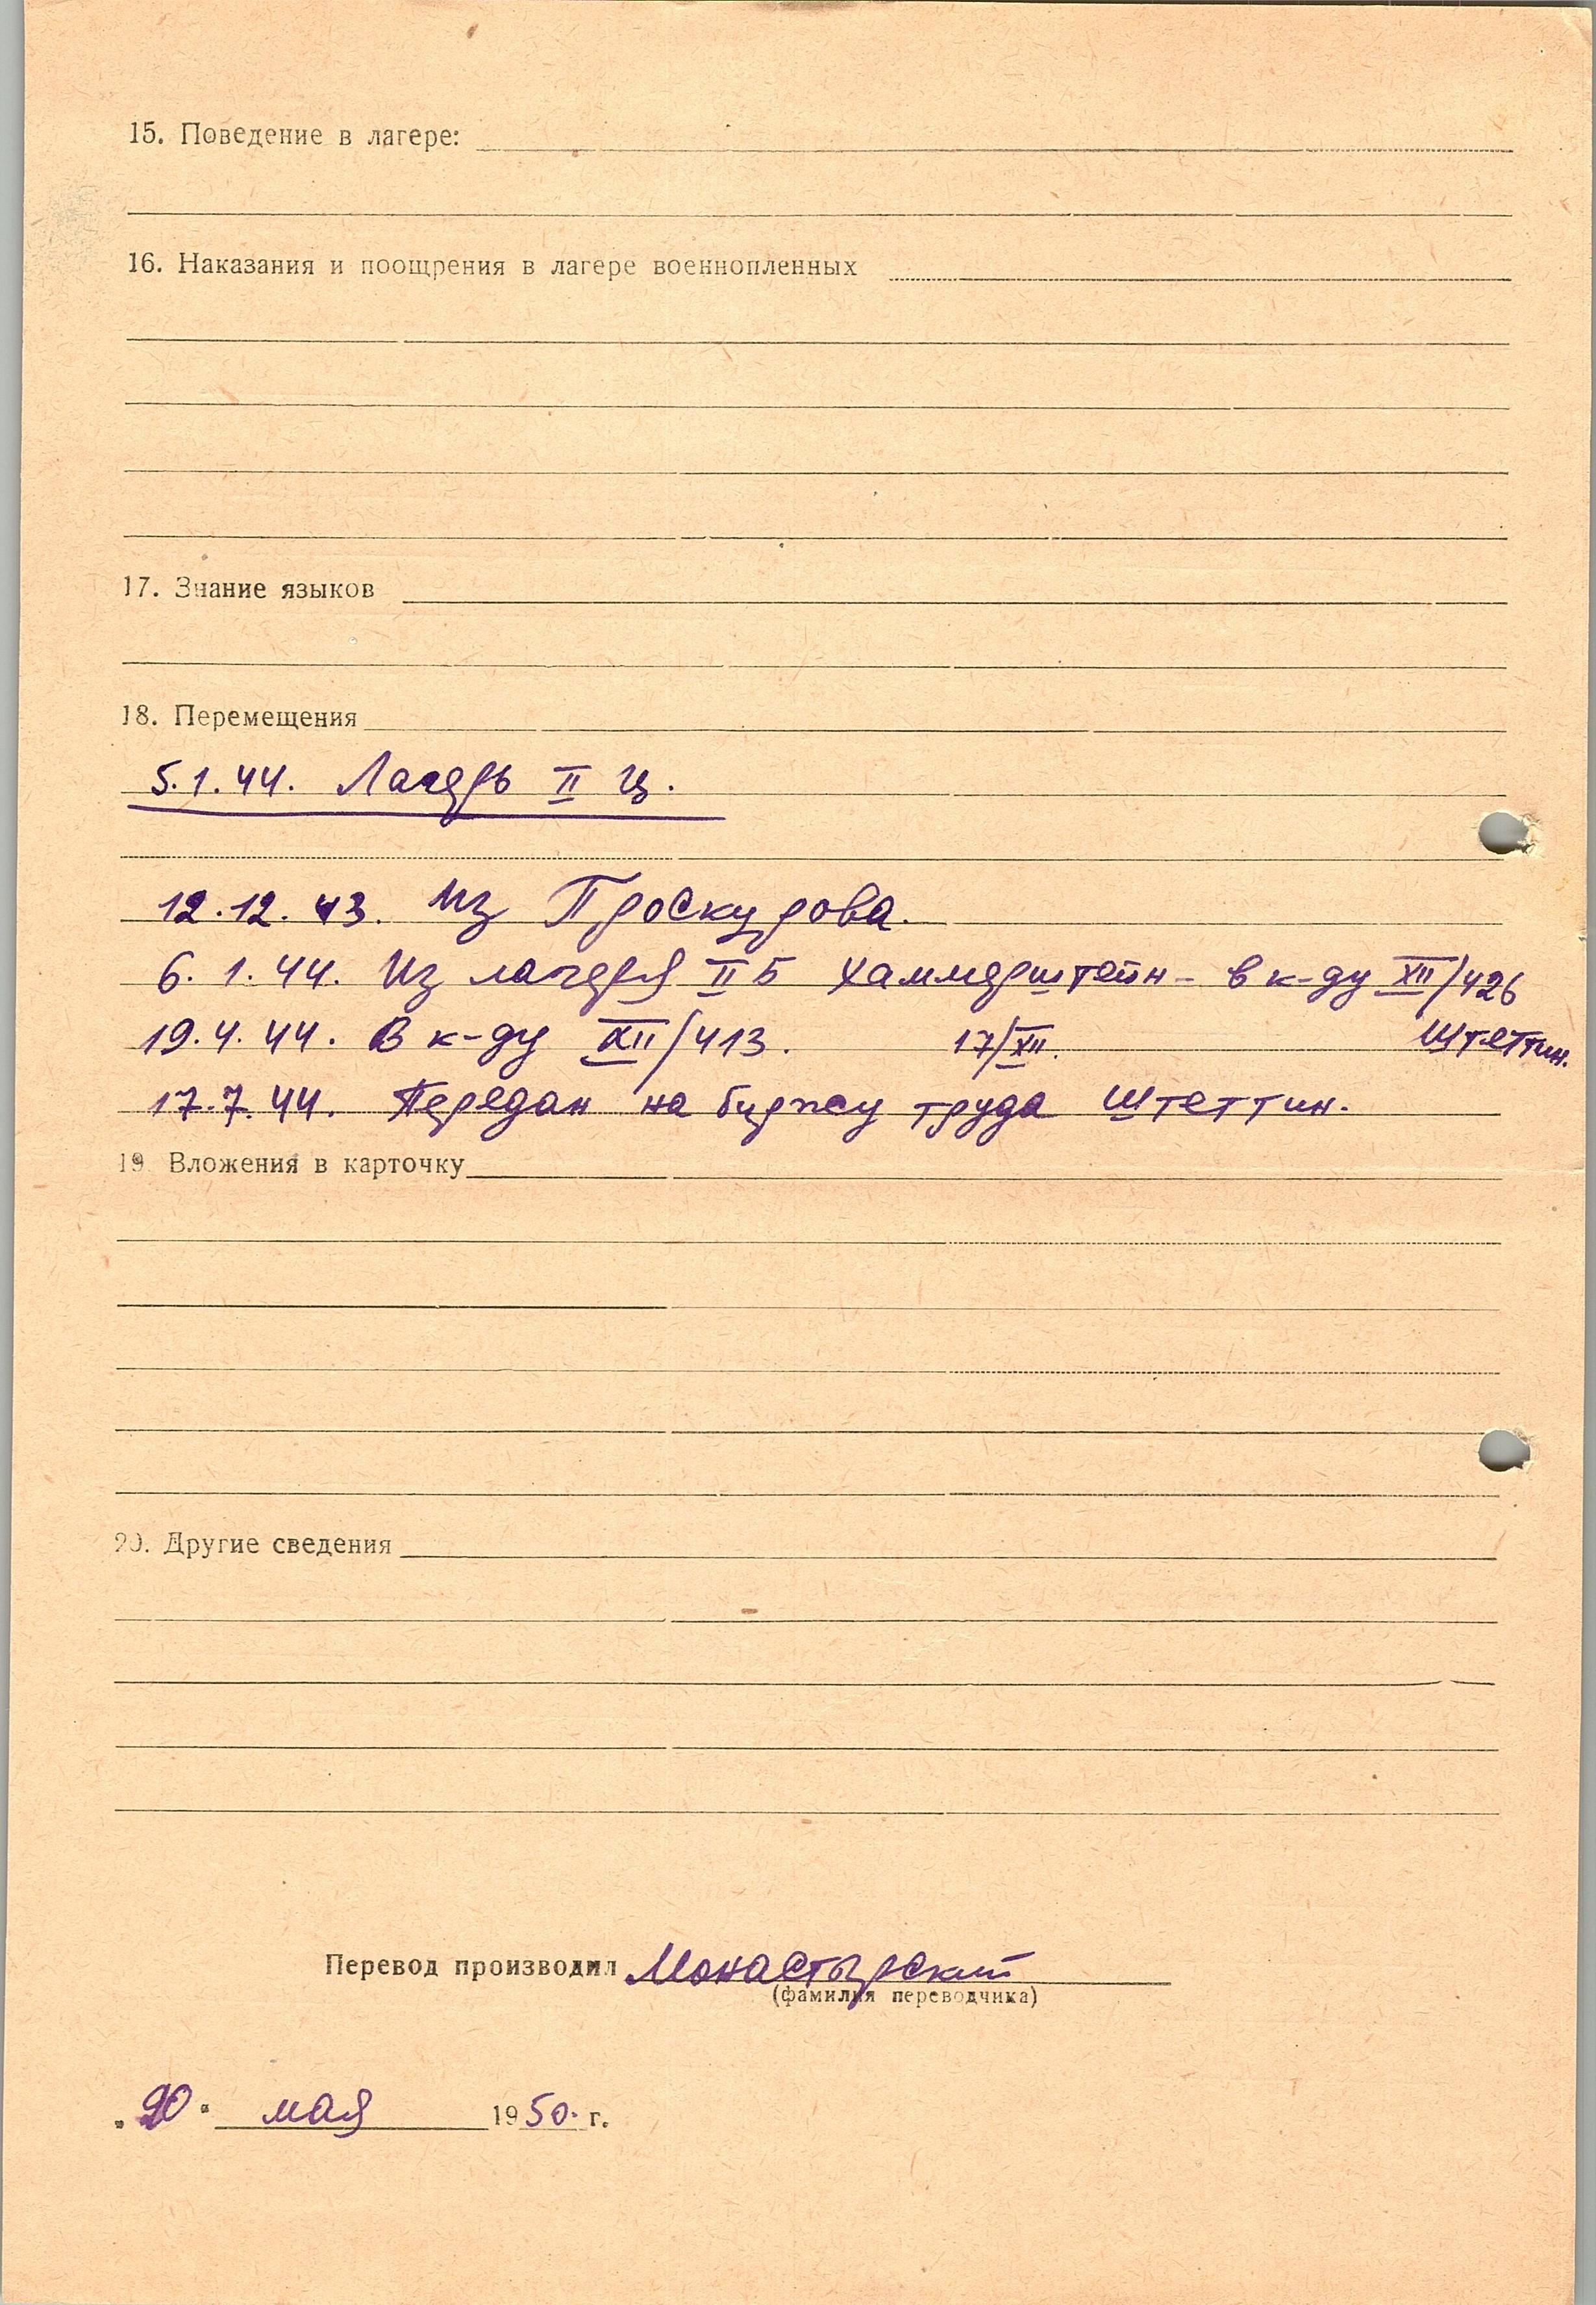 15. Поведение в лагере:
16. Наказания и поощрения в лагере военнопленных
17. Знание языков
18. Перемещения
5.1.44. Лагерь II Ц.
12.12.43. Из Проскурова.
6.1.44. Из лагеря II Б Хаммерштейн - в к-ду XII/426
Штеттин.
19.4.44. В к-ду XII/413. 17/XII.
17.7.44. Передан на биржу труда Штеттин.
19. Вложения в карточку
20. Другие сведения
Перевод производил Монастырский
(фамилия переводчика)
„20“ мая 1950. г.